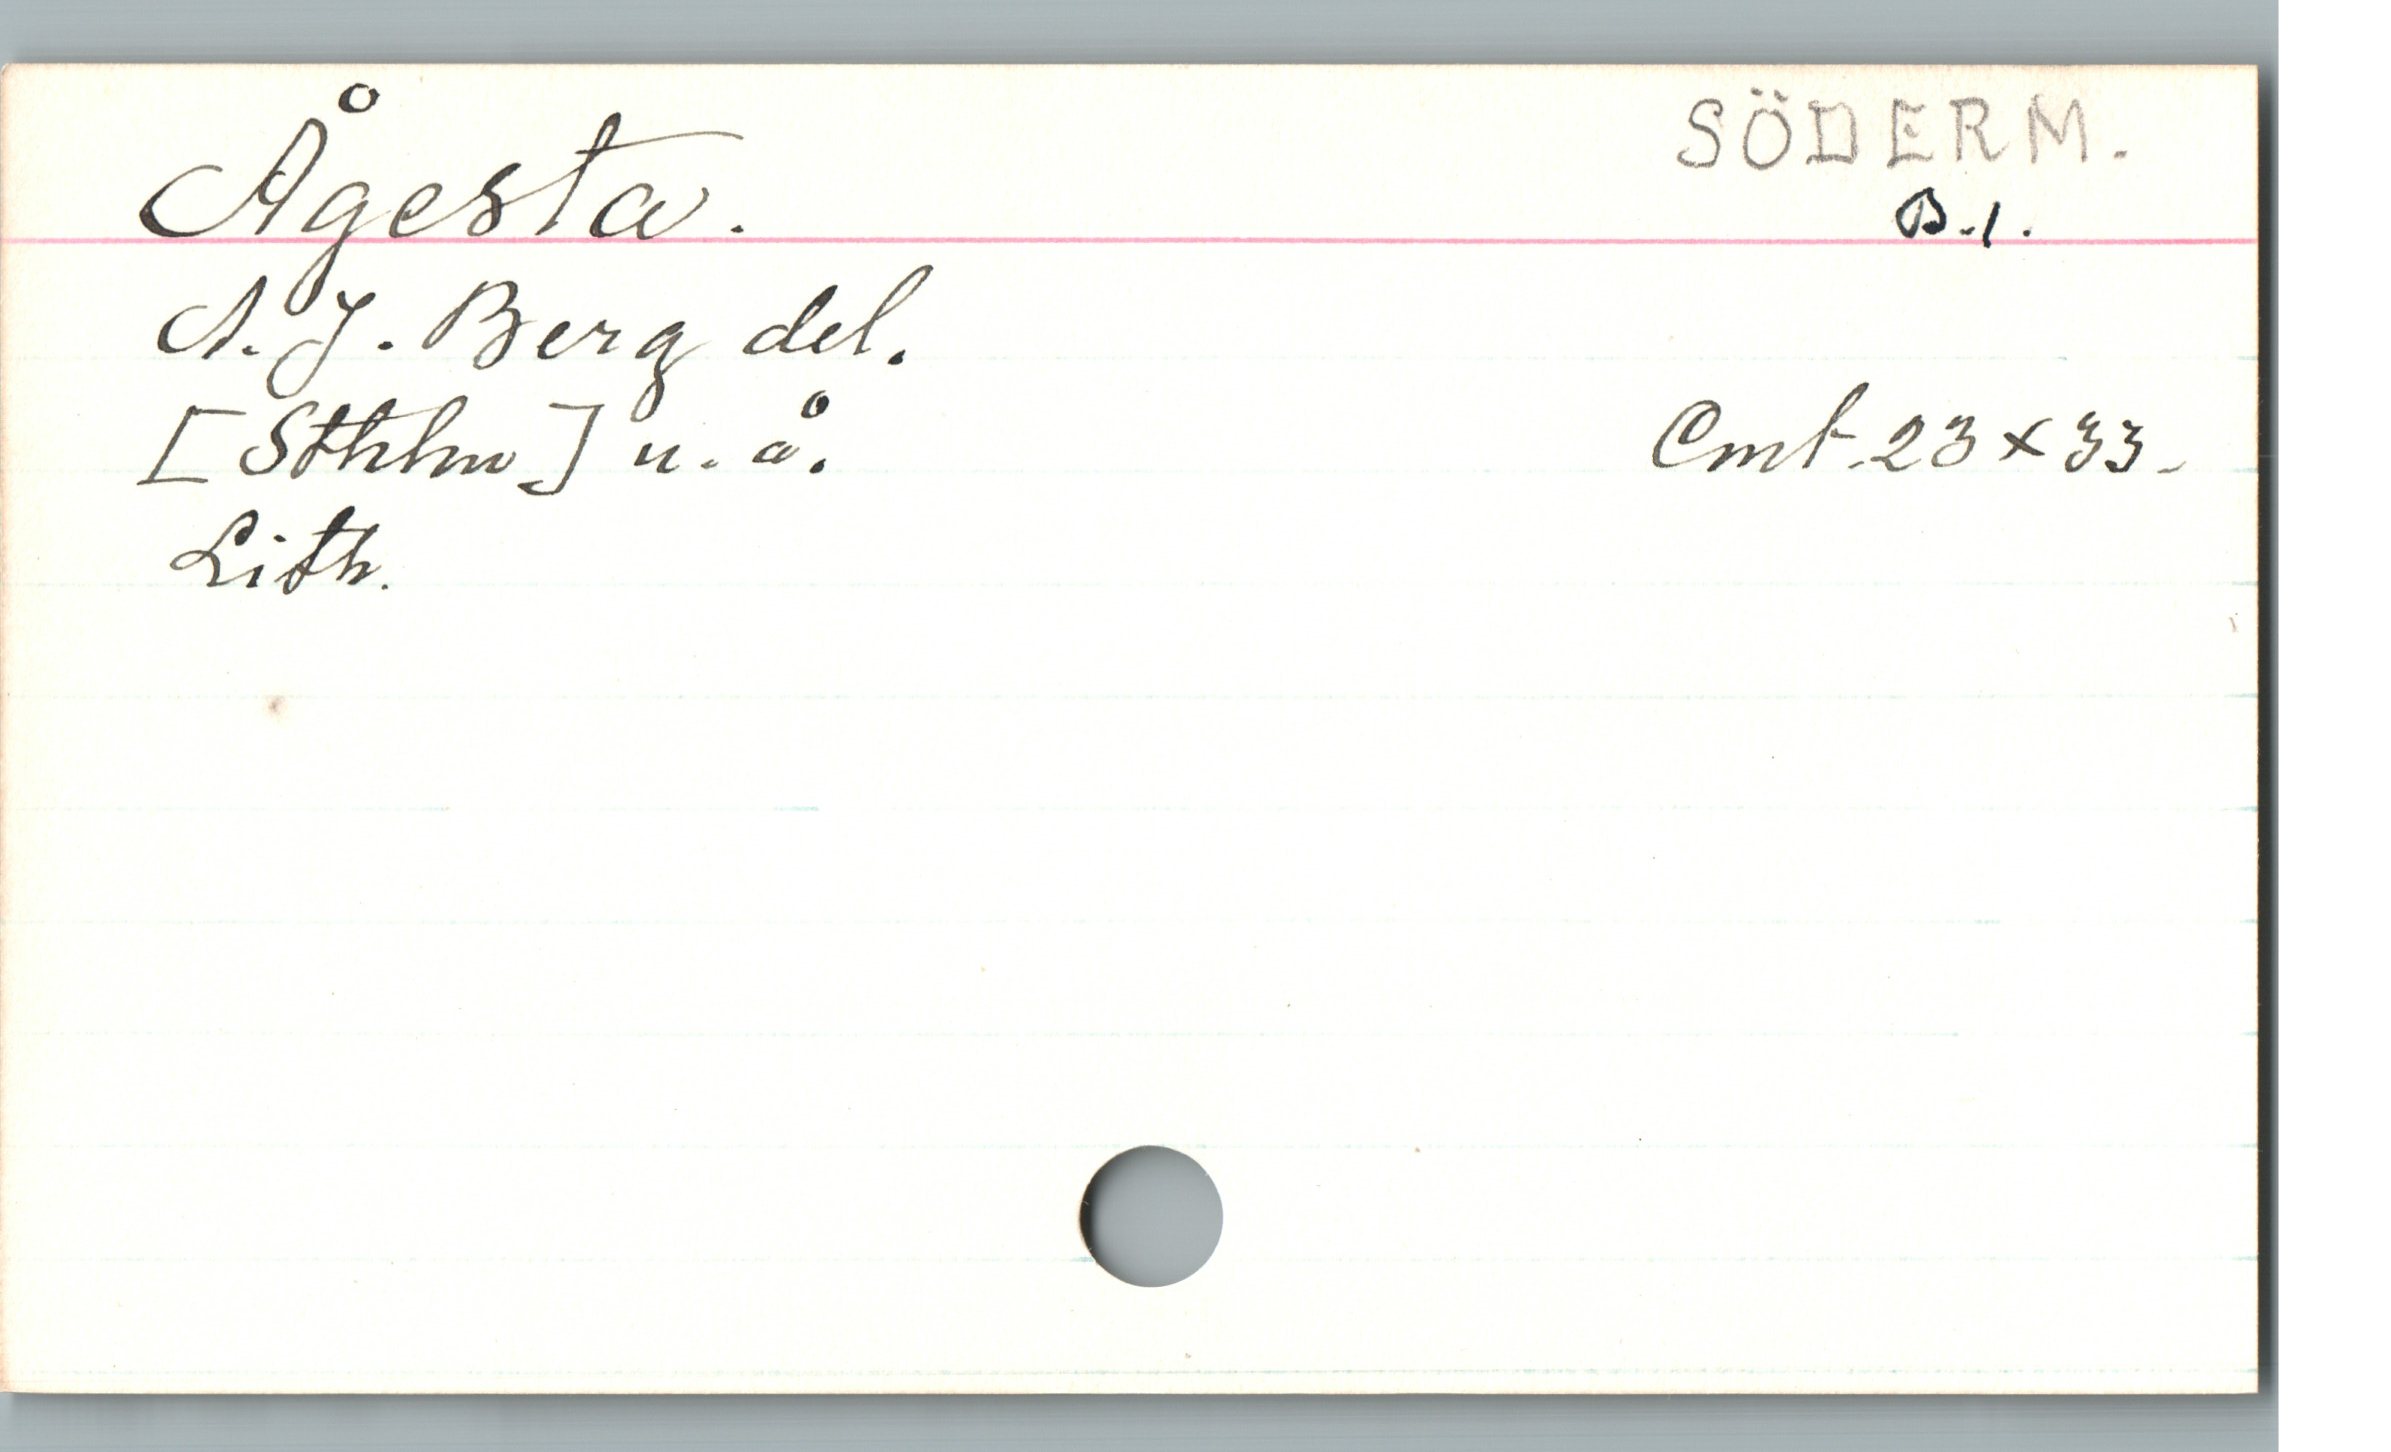 Ågesta.
SÖDERM.
B.1.
A. J. Berg del.
[Sthlm] u. å.
Cmt. 23 x 33.
Lith.